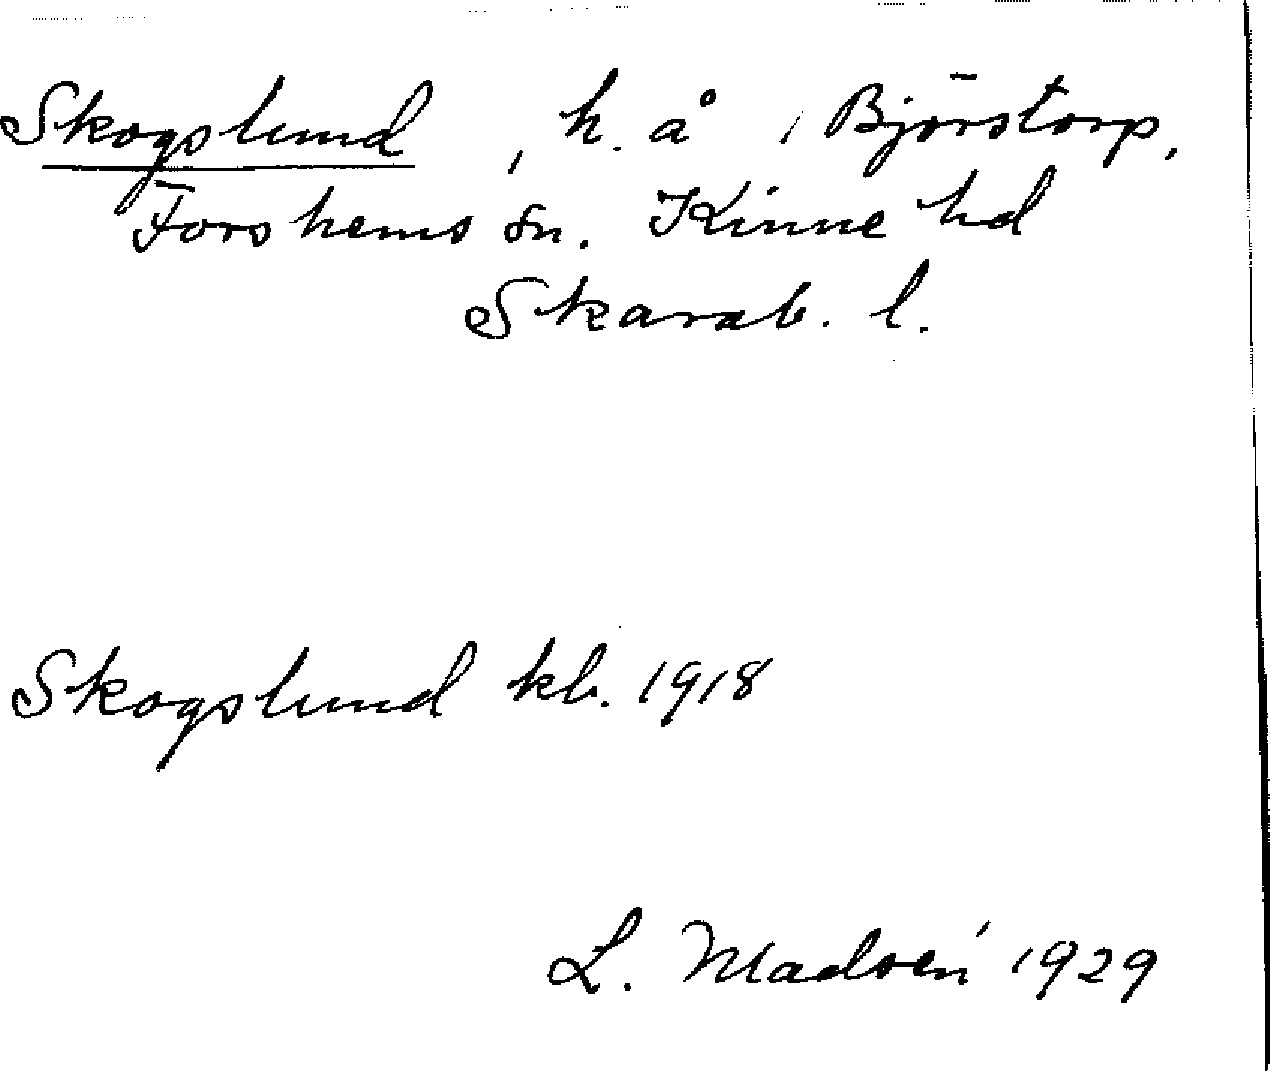 Skogslund, h. å 1 Björstorp,
Forshems sn. Kinne hd
Skarab. l.
Skogslund kb. 1918
L. Madsén 1929